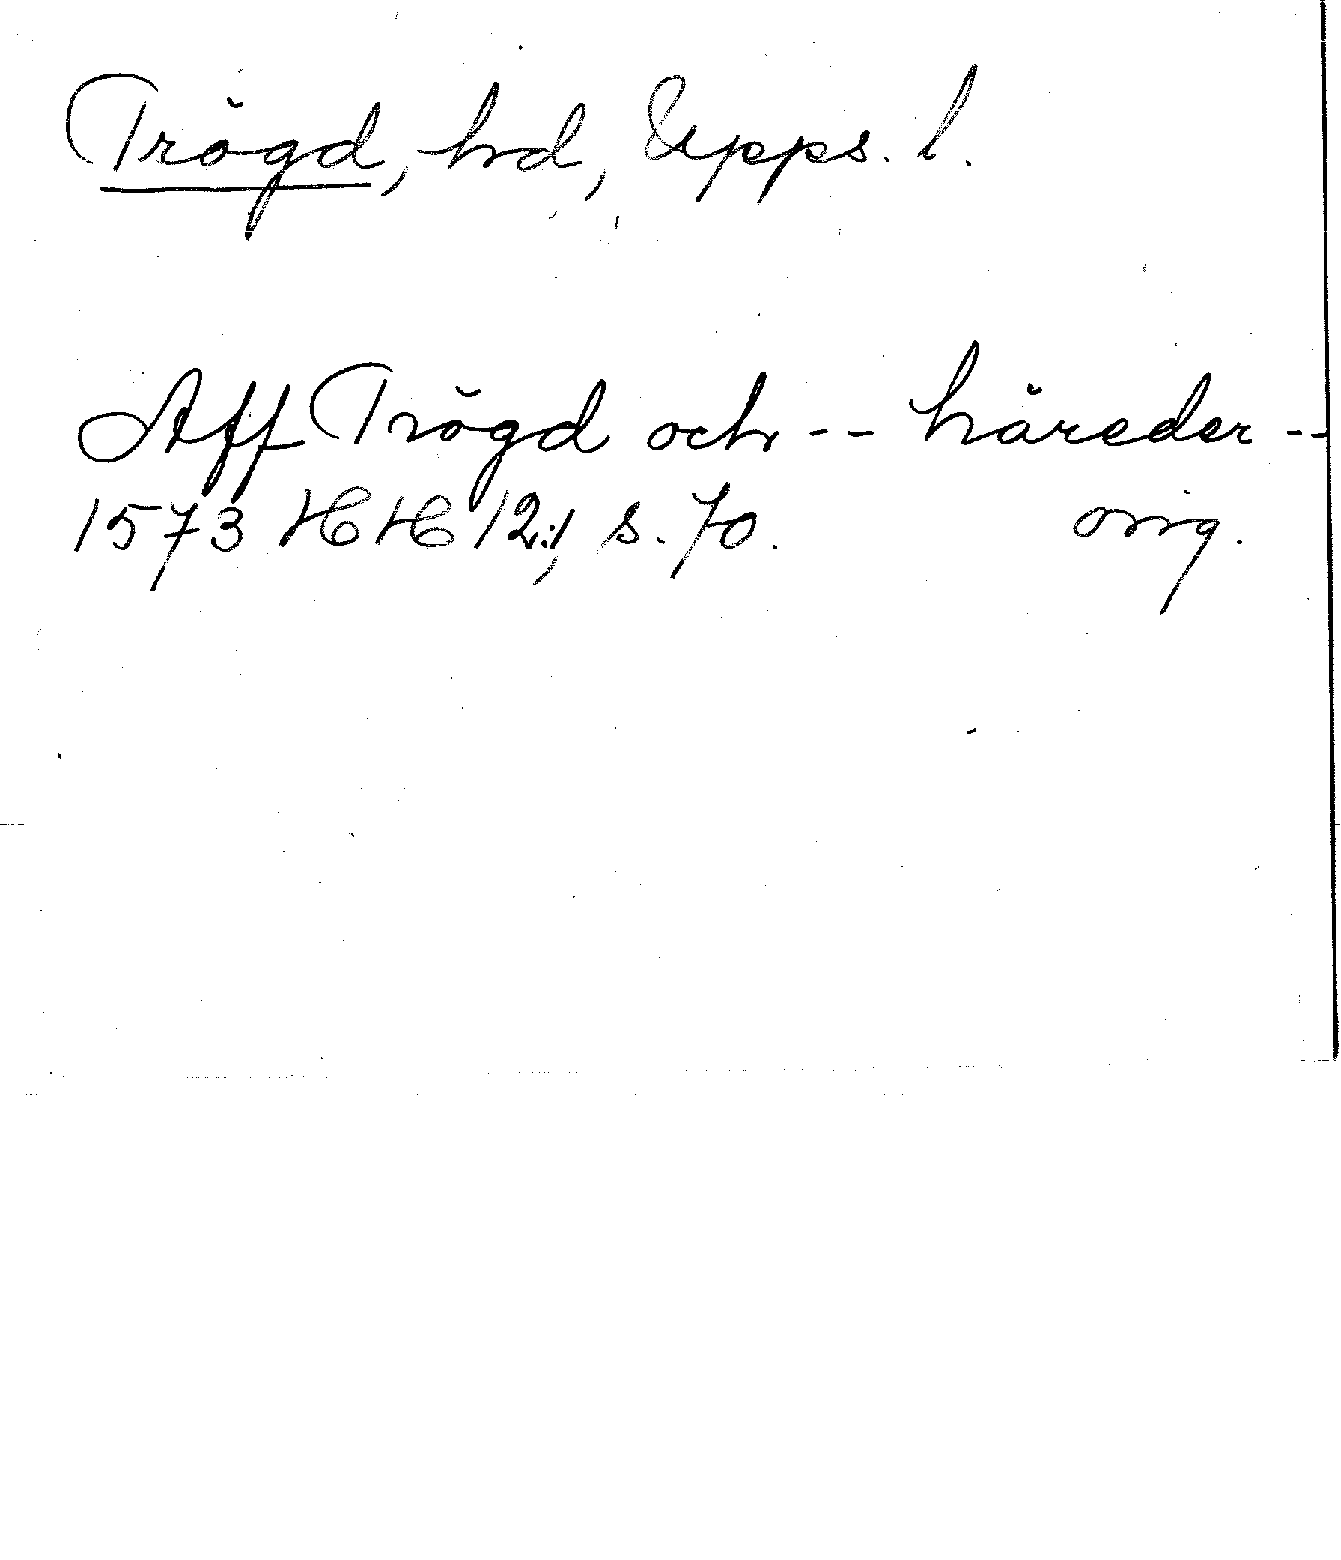 Trögd, hd, Upps. l.
Aff Trögd och -- häreder --
1573 HH 12:1, s. 70. orig.